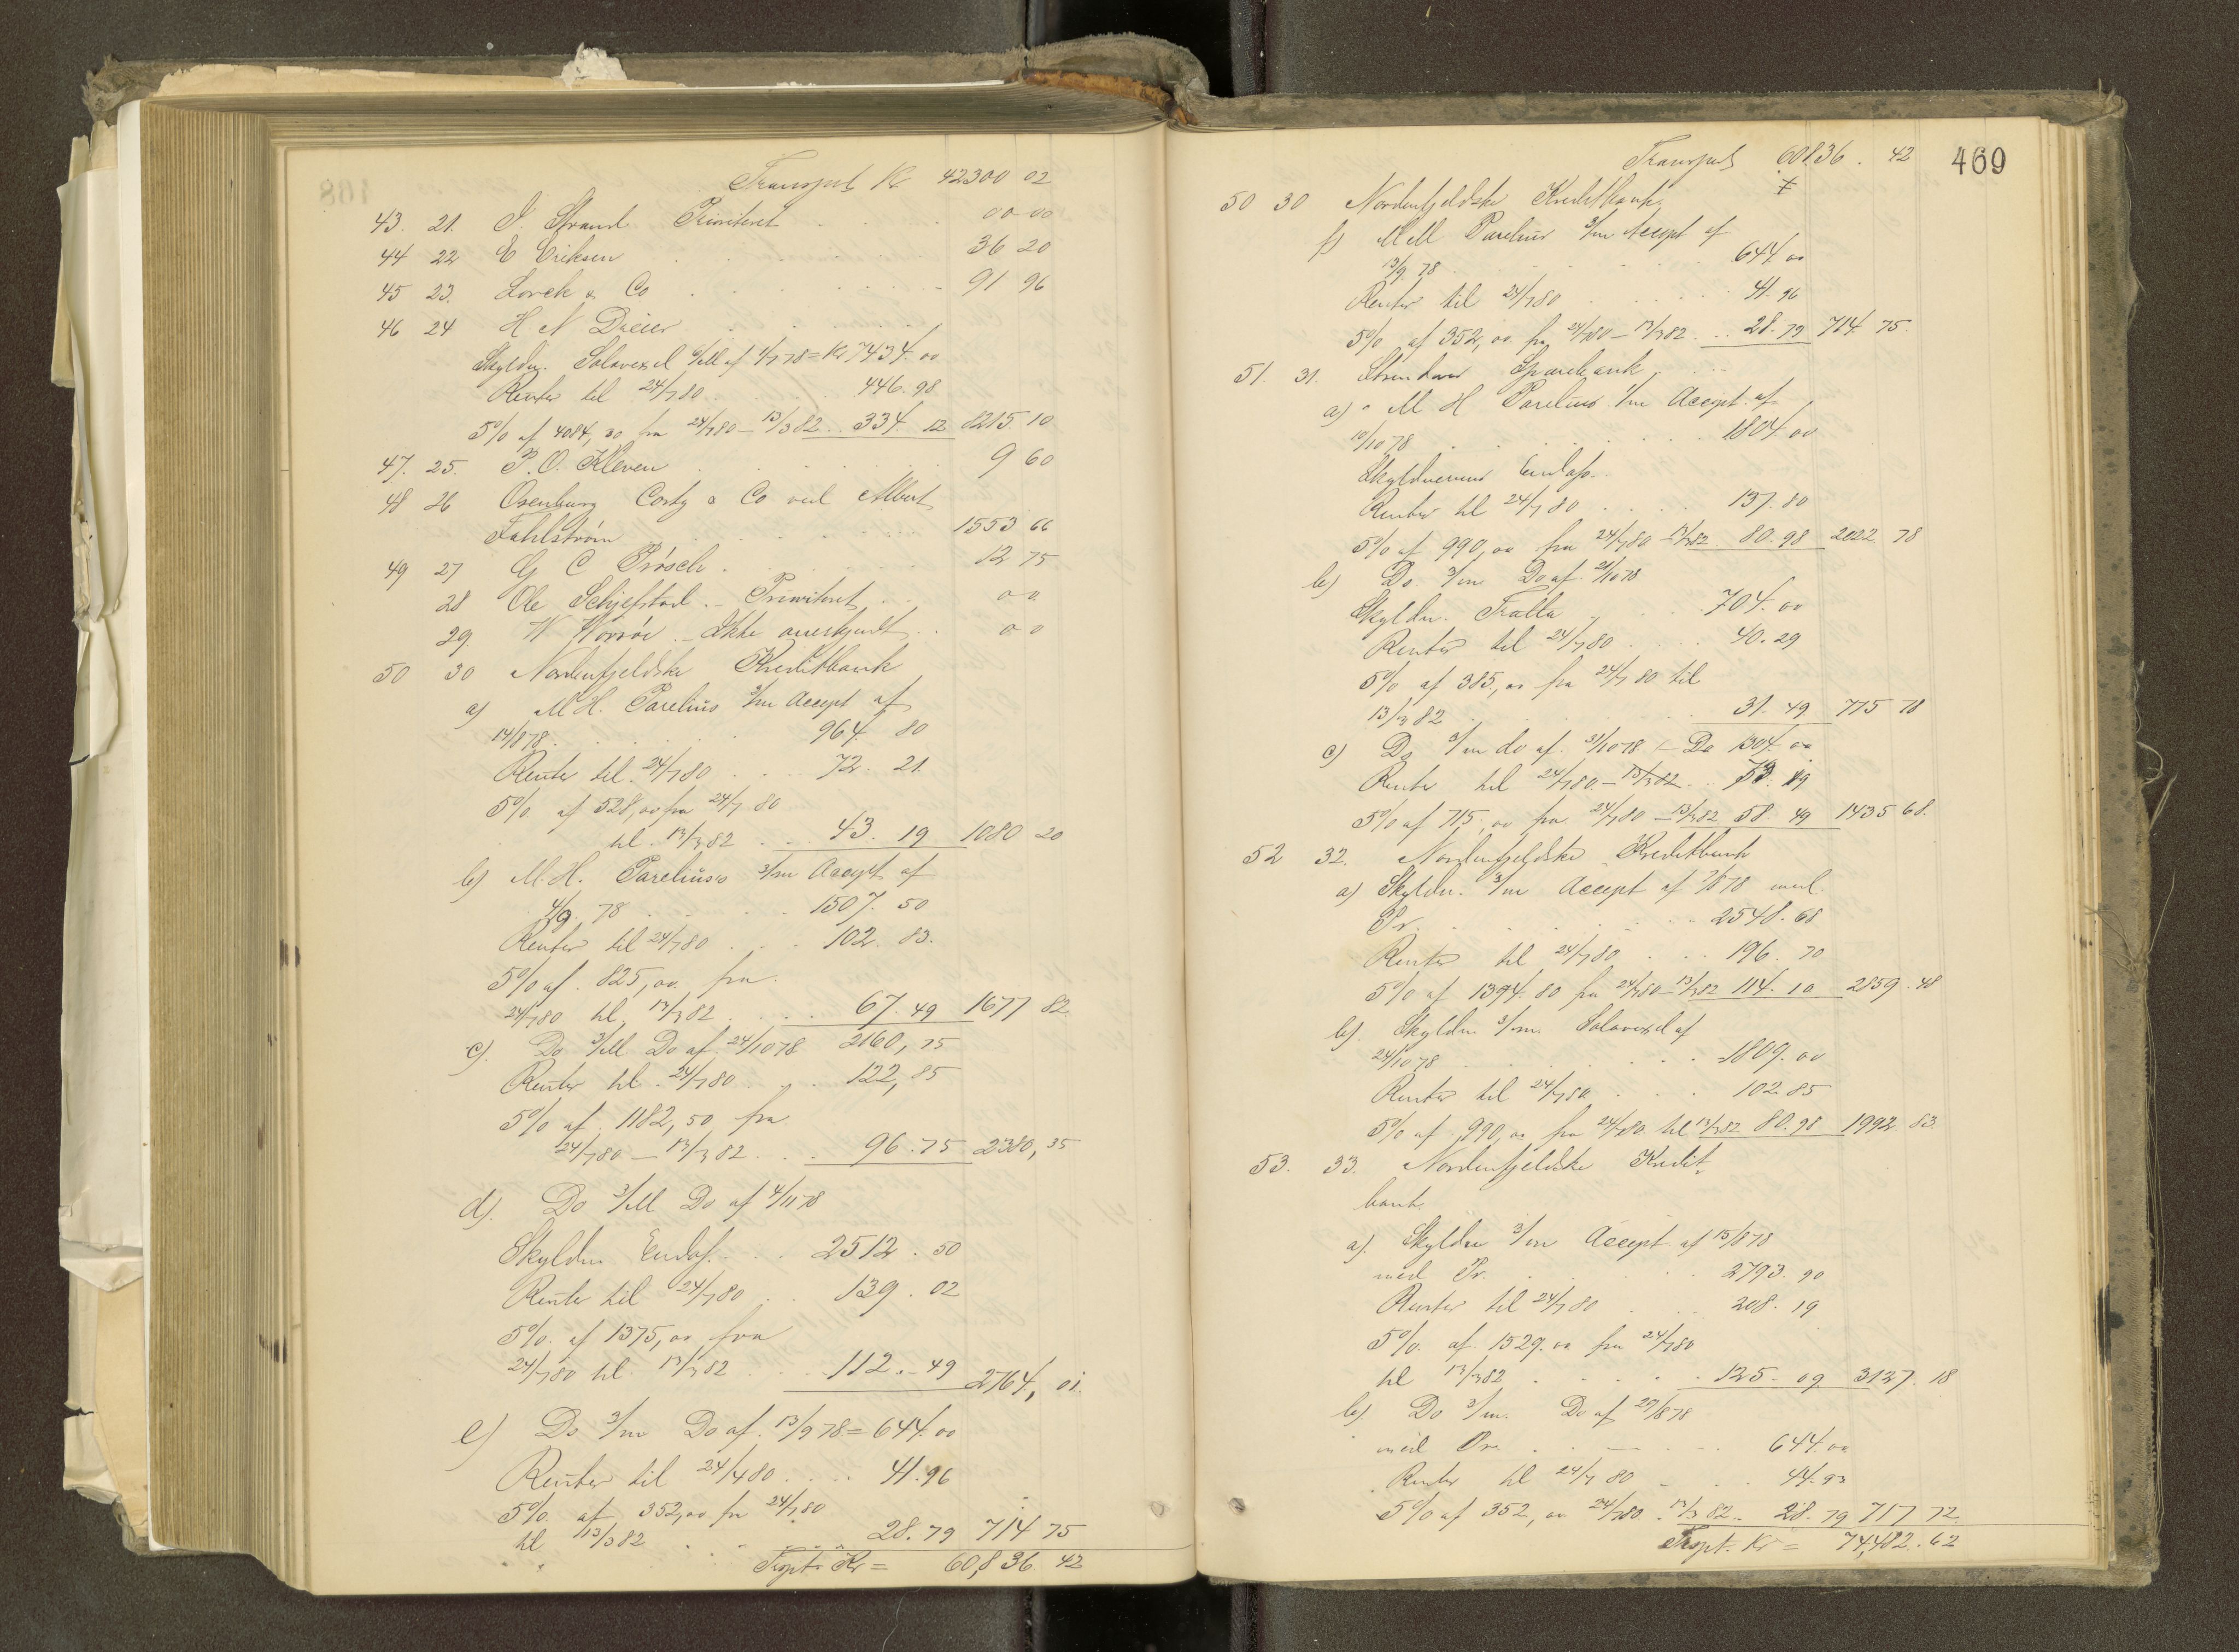 Transport Kr 42300 02
43. 21. J. Strand Prioriteret . . 00 00
44 22 E Eriksen . . . 36 20
45 23. Lorck & Co . . . 91 96
46 24 H N Dreier . . .
Skyldn. Solavexel 6/M af 1/7 78 = Kr 7434. 00
Renter til 24/7 80 . . . 446. 98
5% af 4084, 30 fra 24/7 80 – 13/3 82 . . 334. 12 8215. 10
47. 25. P. O. Kleven . . . 9 60
48 26 Osenburg Costy & Co ved Albert
Fahlström . . . 1553 66
49 27 G C Prösch . . . 12 75
28 Ole Schjefstad. – Prioriteret . . 00
29. W – Ikke anerkjendt . . 00
50 30 Nordenfjeldske Kreditbank
a) M H. Parelius 3/m Accept af
14/8 78 . . . 964. 80
Renter til 24/7 80 . . . 72. 21
5% af 528,00 fra 24/7 80
til 13/3 82 . . . 43. 19 1080 20
b) M. H. Parelius's 3/m Accept af
4/9. 78 . . . 1507. 50
Renter til 24/7 80 . . . 102. 83.
5% af 825,00 fra
24/7 80 til 13/3 82 . . . 67. 49 1677 82
c). Do 3/M Do af 24/10 78 2160, 75
Renter til 24/7 80 . . . 122, 85
5% af 1182, 50 fra
24/7 80 – 13/3 82 . . . 96. 75 2380, 35
d). Do 3/M Do af 4/11 78
Skyldn. Endos. . . . 2512. 50
Rente til 24/7 80 . . 139. 02
5%. af 1375,00 fra
24/7 80 til 13/3 82 . . . 112. 49 2764, 01.
e) Do 3/m Do af 13/9 78 = 644. 00
Renter til 24/7 80 . . . 41. 96
5% af 352,00 fra 24/7 80
til 13/3 82 . . . 28. 79 714 75
Trspt. Kr = 60,836. 42
Transport 60836. 42
469
50 30 Nordenfjeldske Kreditbank
f) M H Parelius 3/m Accept af
13/9. 78 . . . 644. 00
Renter til 24/7 80 . . . 41. 96
5% af 352,00 fra 24/7 80 – 13/3 82 . . 28. 79 714. 75.
51. 31. Strindens Sparebank . . .
a) M H Parelius /m Accept af
10/10 78 . . . 1804. 00
Skyldneren Endoss.
Renter til 24/7 80 . . . 137. 80
5% af 990,00 fra 24/7 80 – 13/3 82 80. 98 2022 78
b) Do. 3/m Do af 21/10 78
Skyldn. Tratta . . . 704. 00
Renter til 24/7 80 . . . 40. 29
5% af 385,00 fra 24/7 80 til
13/3 82 . . . 31. 49 775 78
c) Do 3/m do af 31/10 78 – Do 1304. 00
Renter til 24/7 80 – 13/3 82 . . 73. 19
5% af 715,00 fra 24/7 80 – 13/3 82 58. 49 1435 68.
52 32. Nordenfjeldske Kreditbank
a) Skyldn. 3/m Accept af 7/8 78 med
Pr. . . . 2548. 68
Renter til 24/7 80 . . . 196. 70
5% af 1394. 80 fra 24/7 80 – 13/3 82 114. 10 2859. 48
b). Skyldn. 3/m Solavexel af
24/10 78 . . . 1809. 00
Renter til 24/7 80 . . . 102 85
5% af 990,00 fra 24/7 80. til 13/3 82 80. 98 1992. 83
53. 33. Nordenfjeldske Kredit
bank
a). Skyldn 3/m Accept af 15/8 78
med Pr. . . . 2793. 90
Renter til 24/7 80 . . . 208. 19
5%. af 1529. 00 fra 24/7 80
til 13/3 82 . . . 125. 09 3127. 18
b). Do 3/m. Do af 29/8 78
med Pr. . . . 644. 00
Renter til 24/7 80 . . . 44. 93
5% af 352,00 24/7 80 . 13/3 82 . . 28. 79 717 72.
Trspt. Kr = 74,482. 62